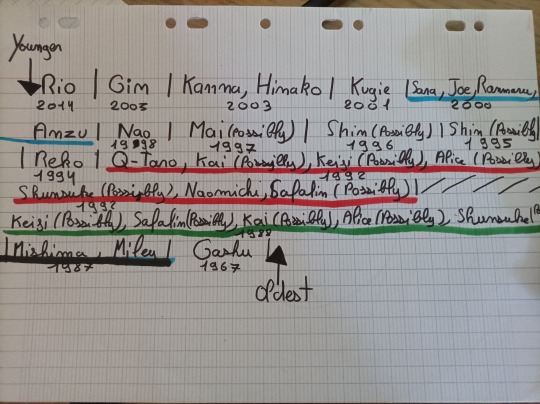 Younger
Rio | Gim | Kanna, Himako | Kugie | Sara, Joe, Ranmaru,
2014 2005 2003 2001 2000
Anzu | Nao | Mai (Possibly) | Shim (Possibly) | Shin (Possibly)
1998 1997 1996 1995
| Reko | Q-tano, Kai (Possibly), Keiji (Possibly), Alice (Possibly)
1994 1992
Shunsuke (Possibly), Naomichi, Safalin (Possibly) |
1992
Keiji (Possibly), Safalin (Possibly), Kai (Possibly), Alice (Possibly), Shunsuke
1988
| Mishima, Miley | Gashu |
1987 1967
Oldest